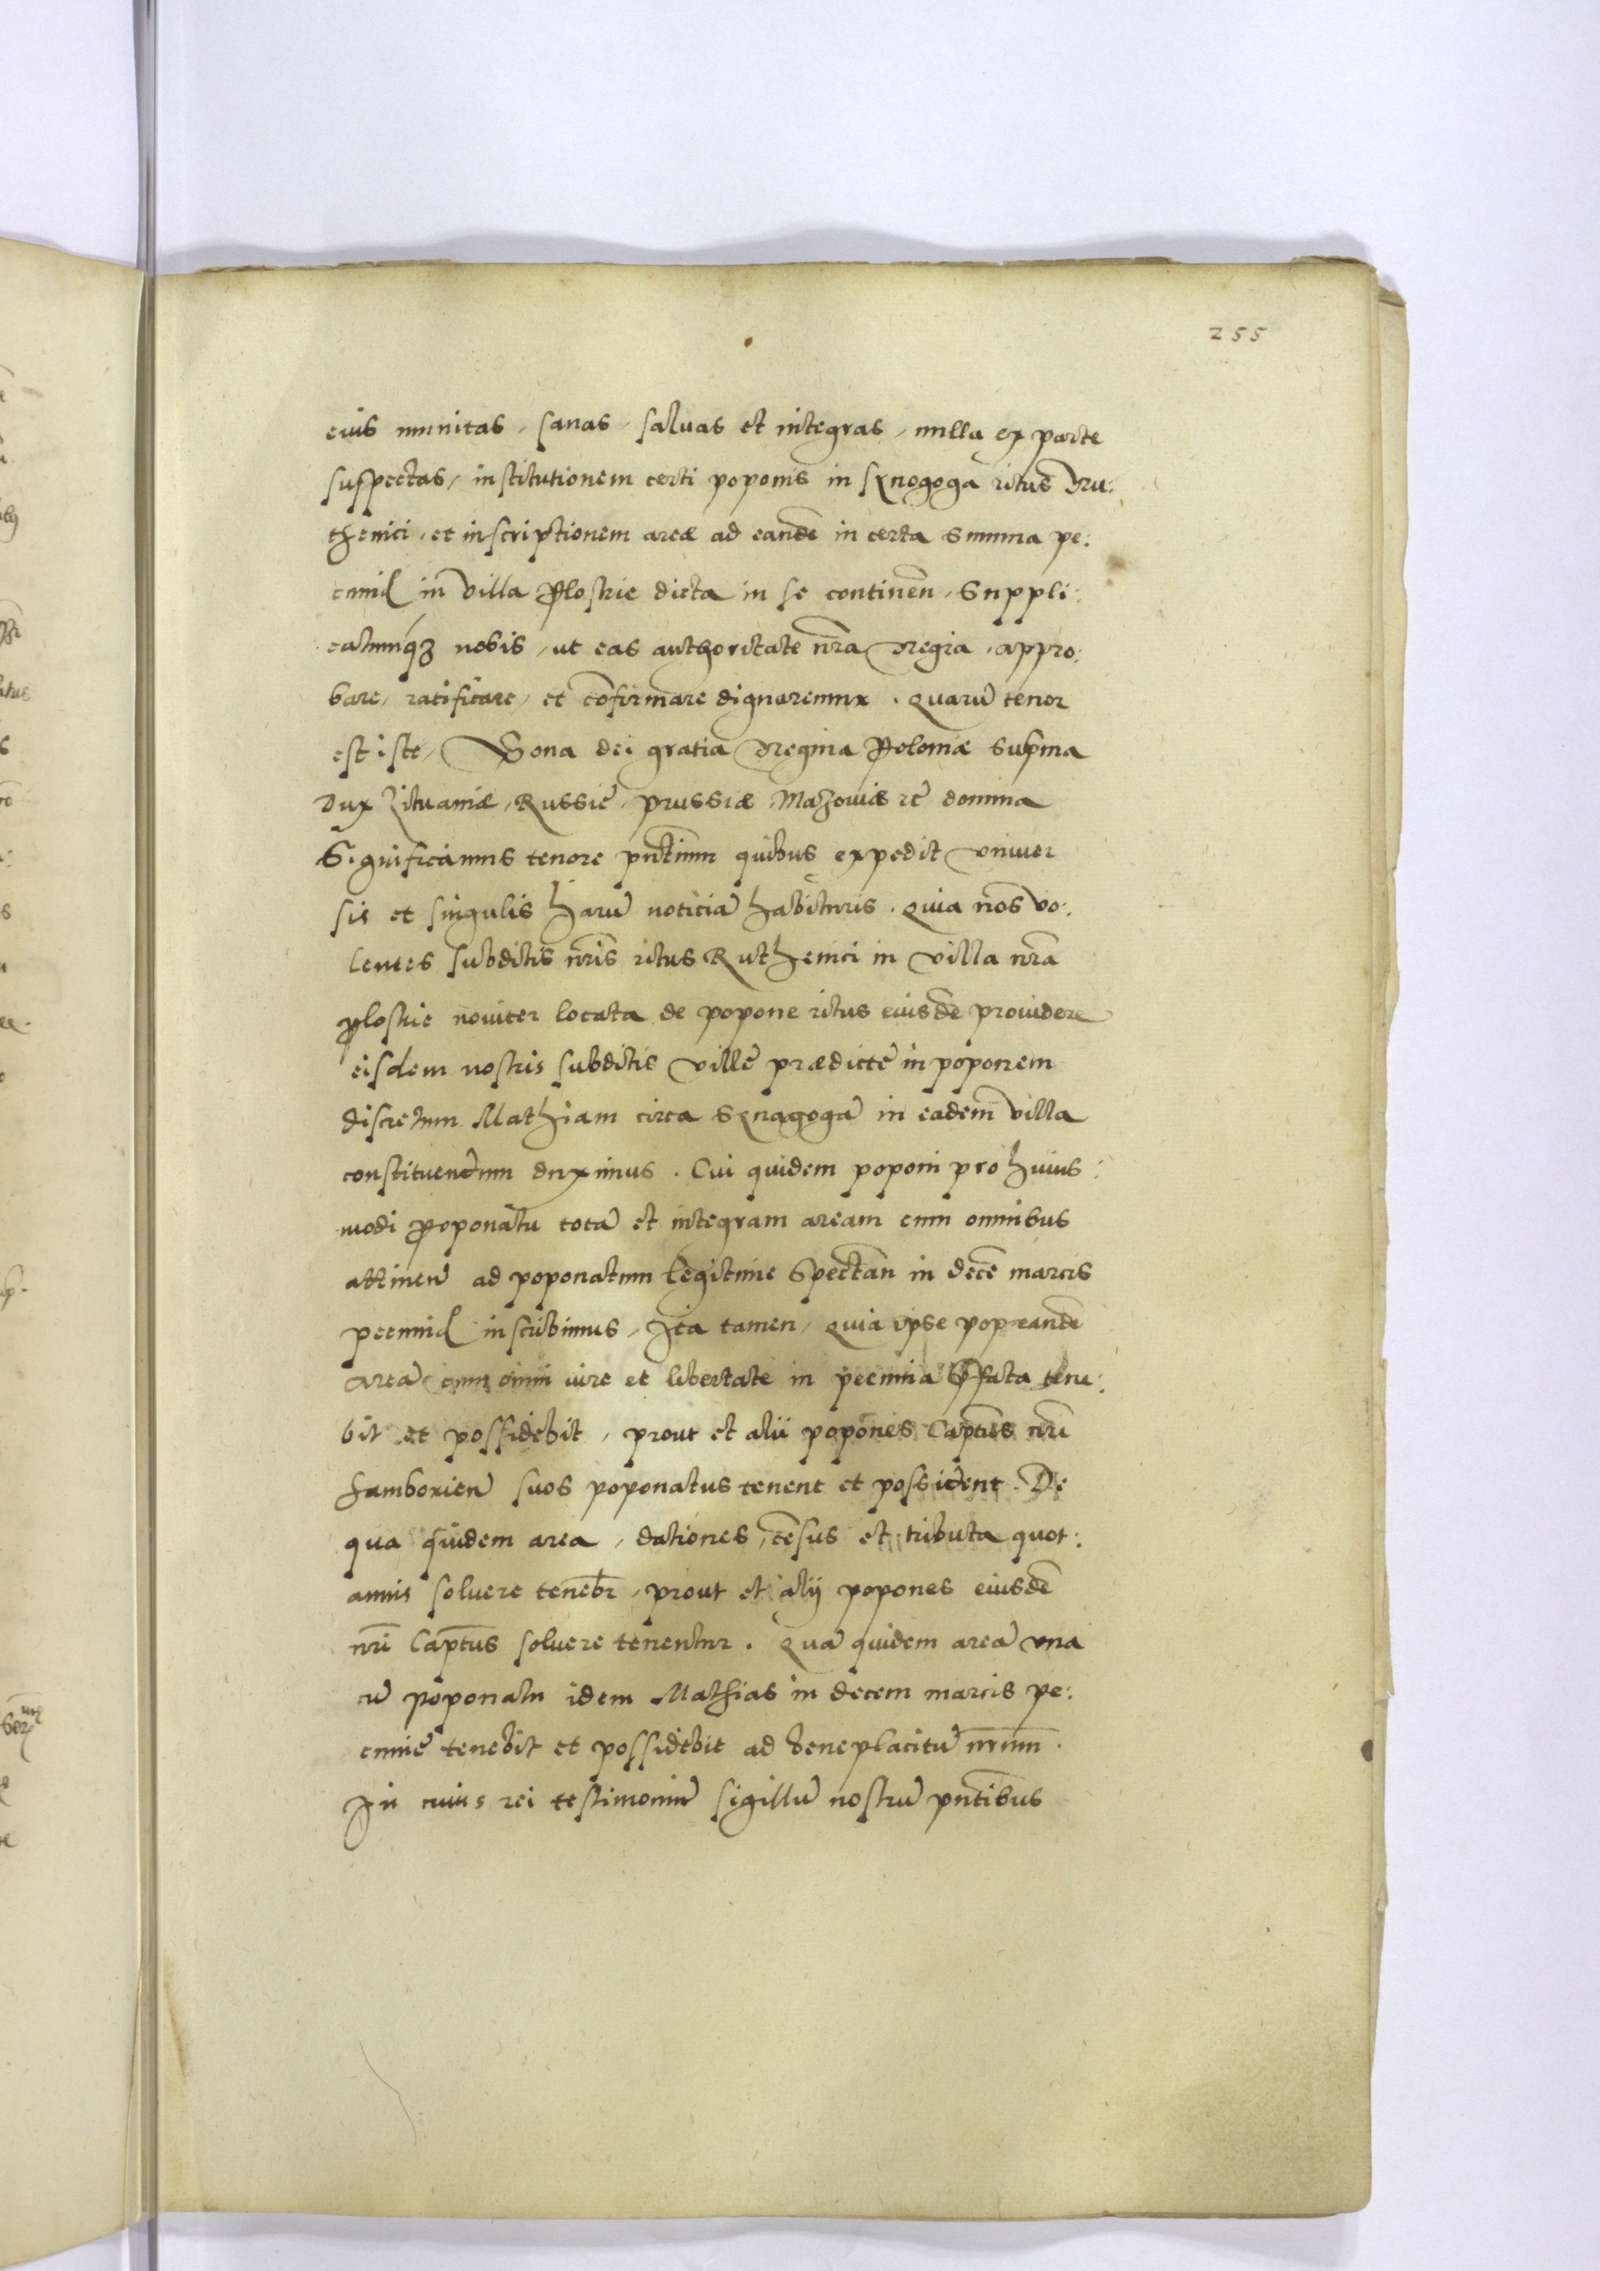 255
eius munitas, sanas, saluas et integras, nulla ex parte
suspectas, institutionem certi poponis in synogoga ritus Ru:
thenici, et inscriptionem areæ ad eandē in certa summa pe:
cuniæ in villa Plostie dicta in se continēn, Suppli:
catumq̃ nobis, ut eas authoritate nr̄a Regia, appro:
bare, ratificare, et cōfirmare dignaremur. Quarū tenor
est iste, Bona dei gratia Regina Poloniæ Supma
Dux Lituaniæ, Russiæ, Prussiæ, Mazouiæ zc̄ domina
Significamus tenore pn̄tium quibus expedit vniuer
sis et singulis harū noticiā habituris. Quia nos vo:
lentes subditis nr̄is ritus Ruthenici in villa nr̄a
Plostie nouiter locata de popone ritus eiusdē prouidere
eisdem nostris subditis villę prædictę in poponem
discretum Mathiam circa Synagogā in eadem villa
constituendum duximus. Cui quidem poponi pro huius:
modi Poponatu totā et integram aream cum omnibus
attinen̄ ad poponatum legitime Spectan̄ in decē marcis
pecuniæ inscribimus, Ita tamen, quia ipse pop eandē
areā cum omni iure et libertate in pecunia p̄fata tene:
bit et possidebit, prout et alii popones Captus nr̄i
Samborien̄ suos poponatus tenent et possident. De
qua quidem area, dationes, cēsus et tributa quot:
annis soluere tenebr̄, prout et alij popones eiusdē
nr̄i Captus soluere tenentur. Quā quidem areā vna
cū poponatu idem Mathias in decem marcis pe:
cunię tenebit et possidebit ad beneplacitū nr̄um.
In cuius rei testimoniū sigillū nostrū pn̄tibus